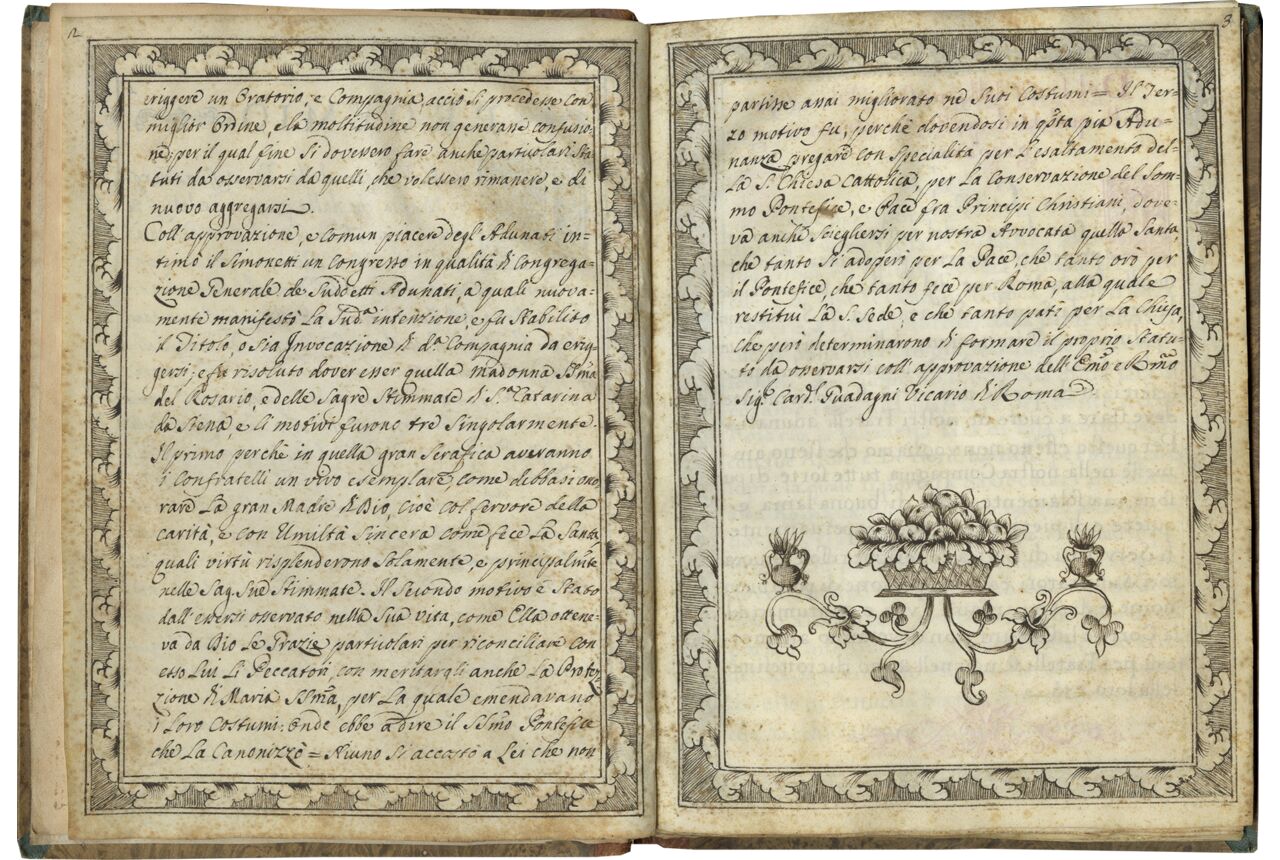 12
eriggere un Oratorio, e Compagnia, acciò si procedesse con
miglior Ordine, e la moltitudine non generasse confusio-
ne; per il qual fine si dovessero fare anche particolari Sta-
tuti da osservarsi da quelli, che volessero rimanere, e di
nuovo aggregarsi.
Coll'approvazione, e comun piacere degl'Adunati in-
timò il Simonetti un Congresso in qualità di Congrega-
zione Generale de Suddetti Adunati, a quali nuova-
mente manifestò La Sud.ª intenzione, e fu Stabilito
il Titolo, o sia Invocazione di d.ª Compagnia da erig-
gersi; e fu risoluto dover esser quella Madonna SSma
del Rosario, e delle Sagre Stimmate di S.ª Catarina
da Siena, e li motivi furono tre singolarmente.
Il primo perchè in quella gran Serafica averanno
i Confratelli un vivo esemplare, come debbasi ono
rare La gran Madre di Dio, cioè col fervore della
carità, e con Umiltà Sincera come fece La Santa
quali virtù risplenderono Solamente, e principalmte
nelle Sag. Sue Stimmate. Il Secondo motivo è Stato
dall'esersi osservato nella Sua Vita, come Ella ottene-
va da Dio Le Grazie particolari per riconciliare con
esso Lui Li Peccatori, con meritargli anche La Prote-
zione di Maria SSma, per La quale emendavano
i Loro Costumi: Onde ebbe a dire il SSmo Pontefice
che La Canonizzò = Niuno Si accostò a Lei che non
3
partisse assai migliorato ne Suoi Costumi = Il Ter-
zo motivo fu, perchè dovendosi in qsta pia Adu-
nanza pregare con Specialità per L'esaltamento del-
La S. Chiesa Cattolica, per La Conservazione del Som-
mo Pontefice, e Pace fra Principi Christiani, dove-
va anche Sciegliersi per nostra Avvocata quella Santa,
che tanto Si adoperò per La Pace, che tanto orò per
il Pontefice, che tanto fece per Roma, alla quale
restituì La S. Sede, e che tanto patì per La Chiesa,
che però determinarono di formare il proprio Statu-
to da osservarsi coll'approvazione dell'Emo e Rmo
Sig.r Card.l Guadagni Vicario di Roma